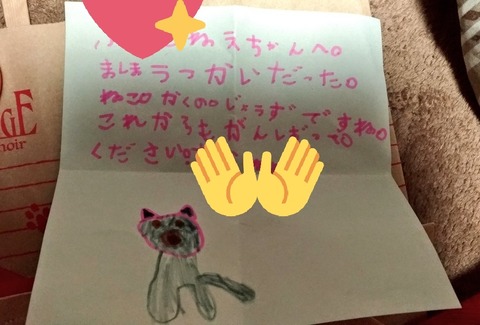 ねえちゃんへ。
ましまうっかじだった。
ねこ。かくの。じょうずですね。
これからも、がんばって。
ください。
GE
noir